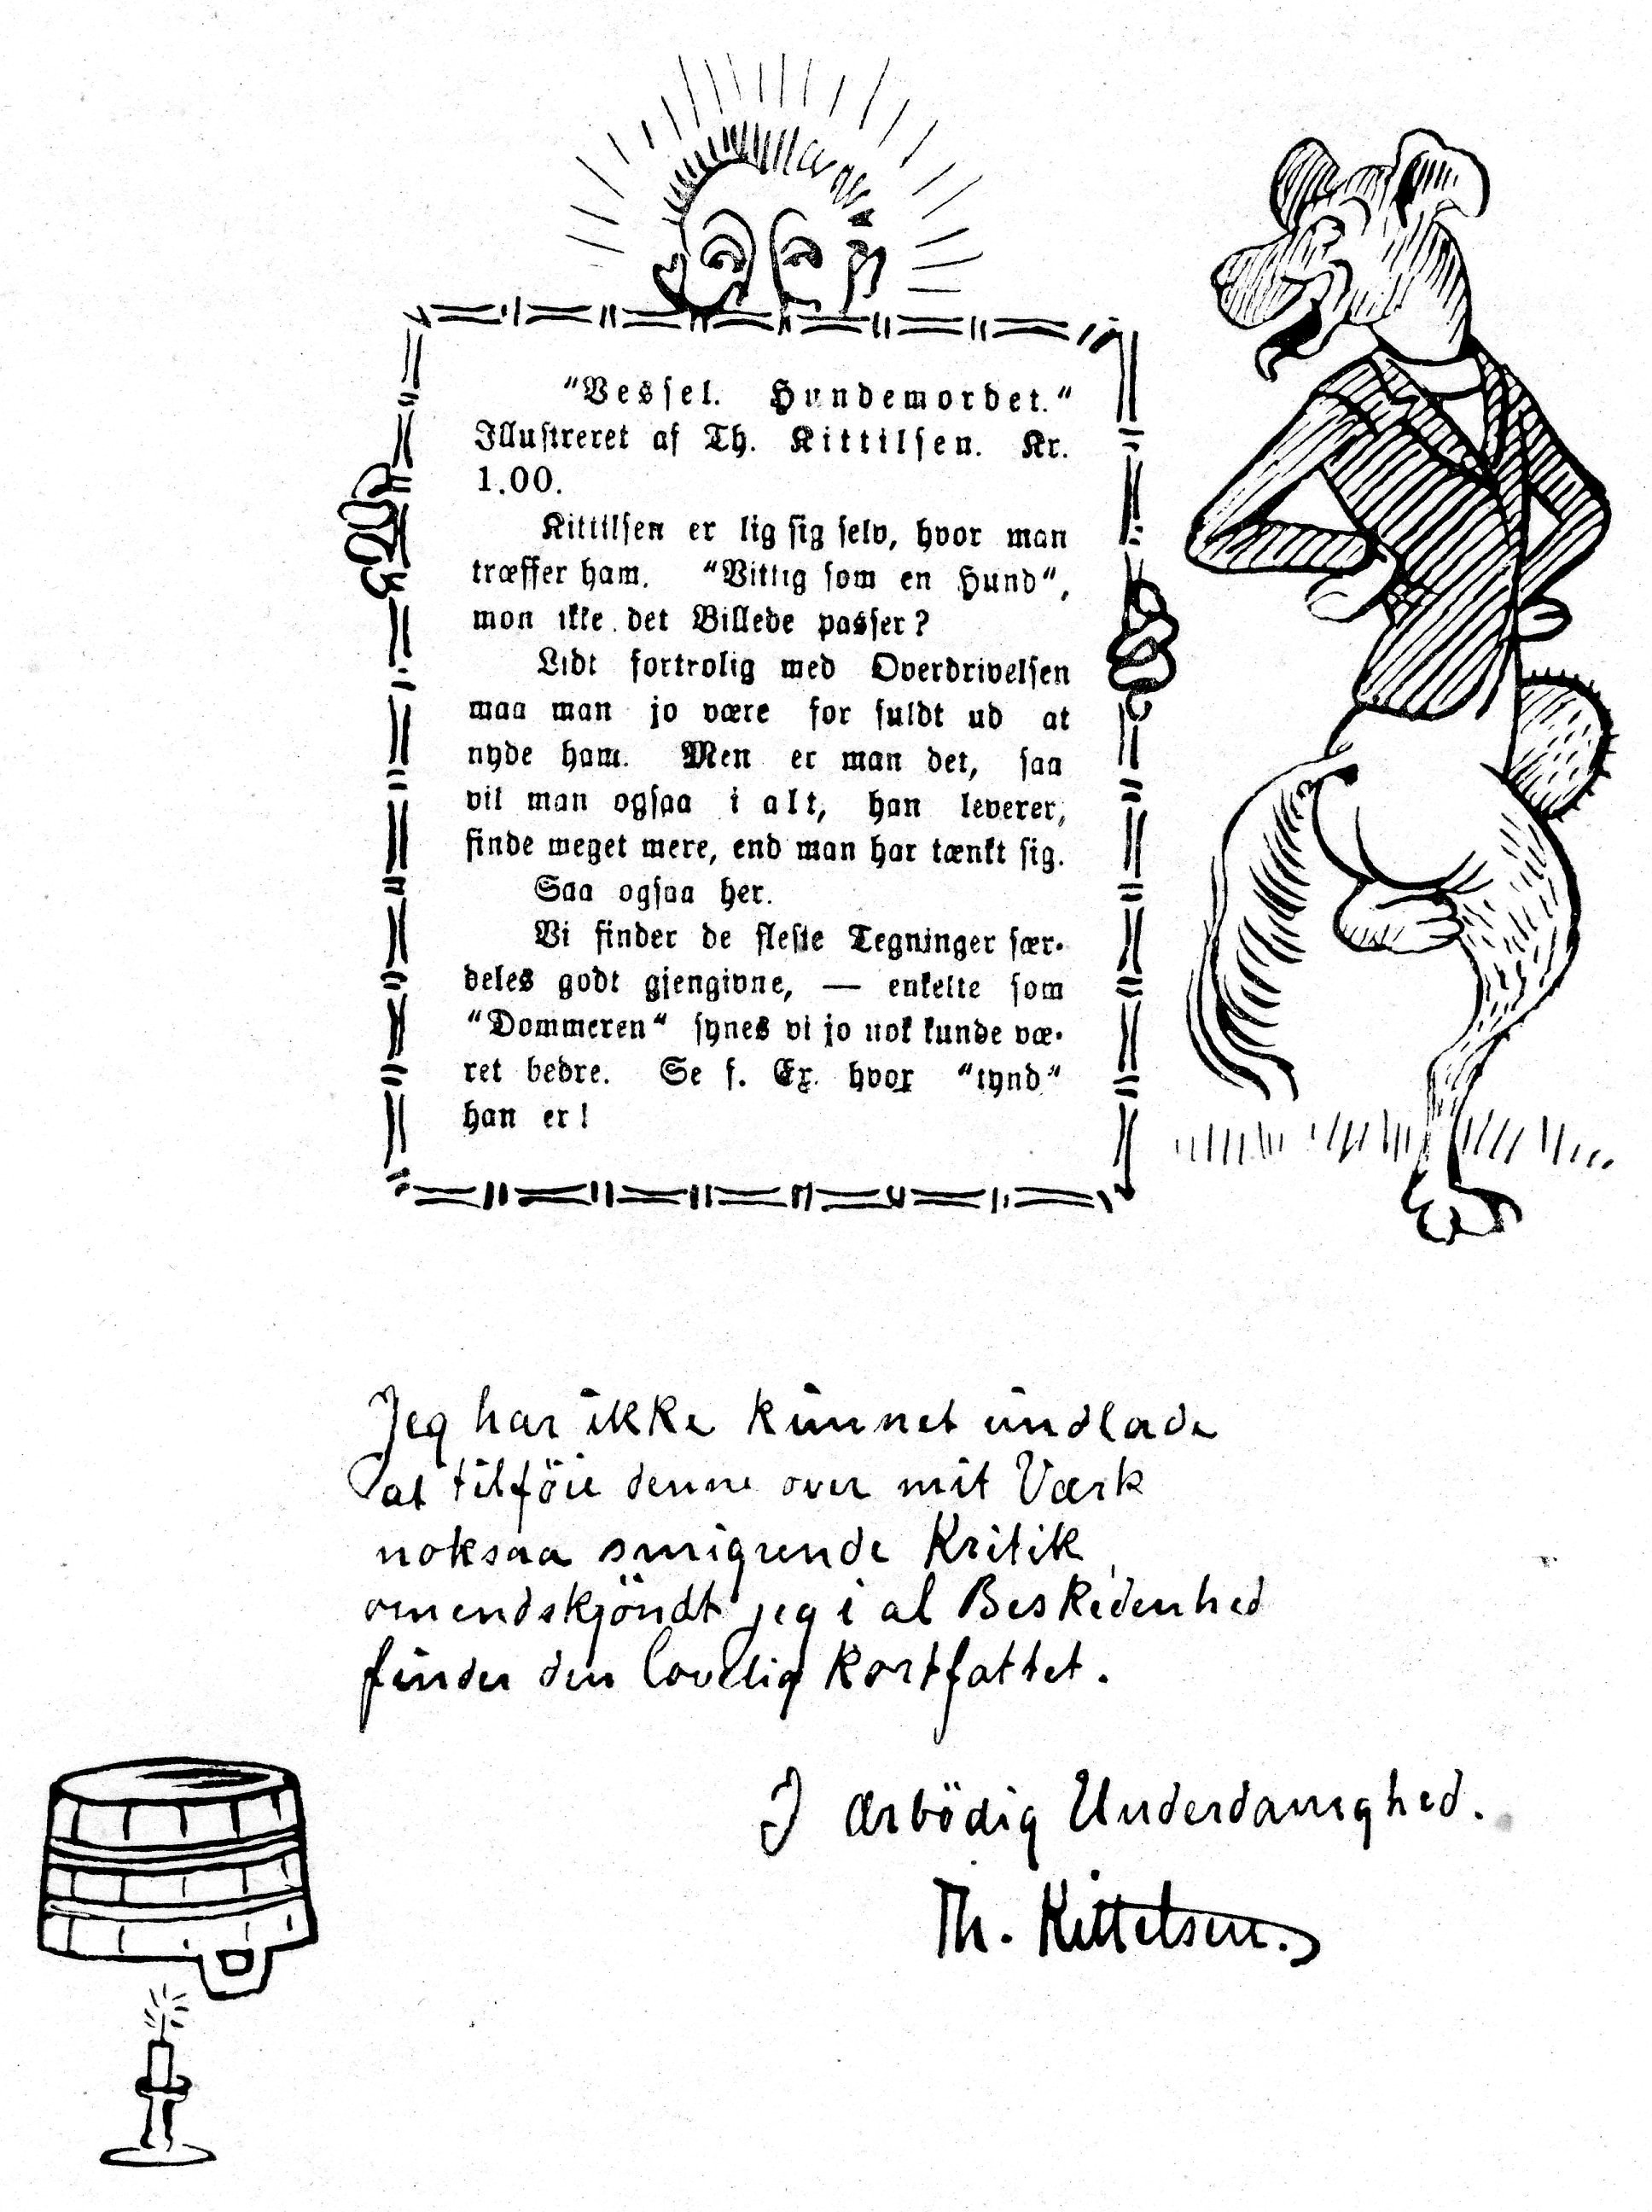 "Vessel. Hundemordet."
Illustreret af Th. Kittilsen. Kr.
1.00.
Kittilsen er lig sig selv, hvor man
træffer ham. "Vittig som en Hund",
mon ikke det Billede passer?
Lidt fortrolig med Overdrivelsen
maa man jo være for fuldt ud at
nyde ham. Men er man det, saa
vil man ogsaa i alt, han leverer,
finde meget mere, end man har tænkt sig.
Saa ogsaa her.
Vi finder de fleste Tegninger sær-
deles godt gjengivne, — enkelte som
"Dommeren" synes vi jo nok kunde væ-
ret bedre. Se f. Ex. hvor "tynd"
han er!
Jeg har ikke kunnet undlade
at tilföie denne over mit Værk
noksaa smigrende Kritik
omendskjöndt jeg i al Beskedenhed
finder den lovlig kortfattet.
I ærbödig Underdanighed.
Th. Kittelsen.